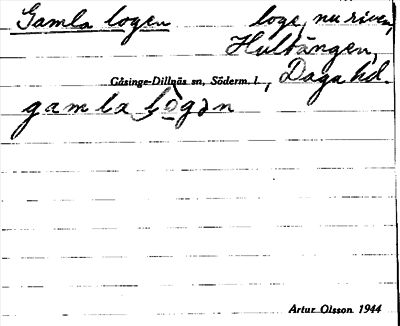 Gamla logen loge, nu riven,
Hultängen,
Gåsinge-Dillnäs sn, Söderm. l., Daga hd.
gamla lògən
Artur Olsson 1944